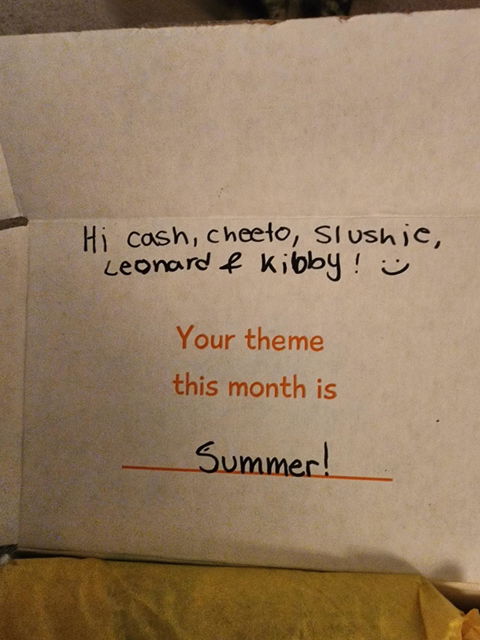 Hi cash, cheeto, Slushie,
Leonard & Kibby! :)
Your theme
this month is
Summer!